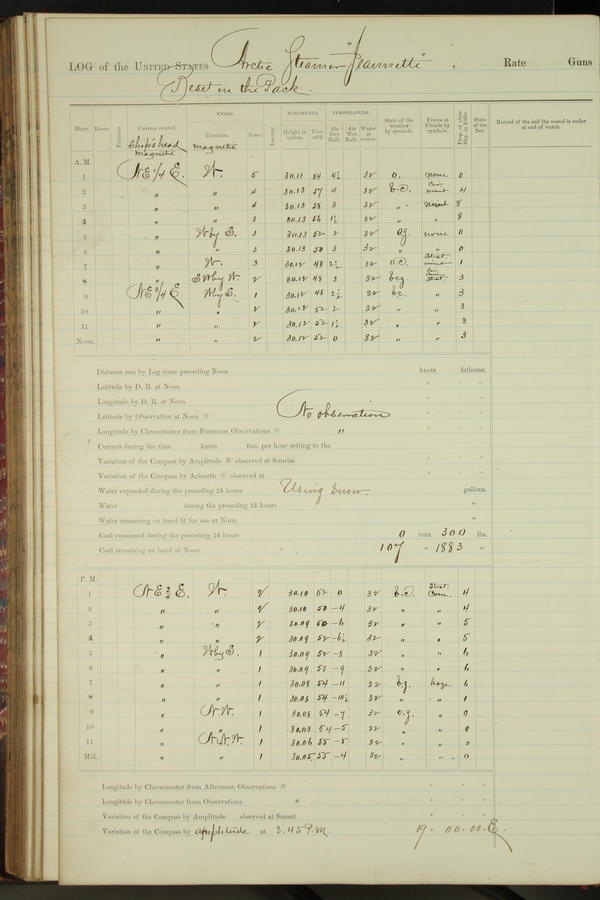 LOG of the United States Arctic Steamer "Jeannette", Rate Guns
Beset in the Pack.
WINDS. BAROMETER. TEMPERATURE.
Hour. Knots. Fathoms. Courses steered Direction. Force. Leeway. Height in inches. Ther. att'd. Air Dry Bulb. Air Wet Bulb. Water at surface. State of the weather by symbols. Forms of Clouds by symbols. Prop. of clear Sky, in 10ths. State of the Sea. Record of the sail the vessel is under at end of watch.
Ship's head magnetic magnetic
A. M.
1 NE 1/4 E. W. 5 30.11 54 4½ 32 o. none 0
2 " " 4 30.13 57 4 32 b.c. Cir. 4
3 " " 4 30.13 58 3 32 " 8
4 " " 3 30.13 56 1½ 32 " " 8
5 " W by S. 3 30.13 52 2 32 o.z. none 0
6 " " 3 30.13 50 3 32 " " 0
7 " W. 3 30.12 48 2½ 32 o.c. Strat. 1
8 " S W by W. 2 30.12 48 3 32 b.c.z. Strat. 3
9 NE 3/4 E. W by S. 1 30.12 48 2½ 32 " 3
10 " " 2 30.12 52 2 32 " " 3
11 " " 2 30.12 52 1½ 32 " " 3
Noon. " " 2 30.12 52 0 32 " " 3
Distance run by Log since preceding Noon knots fathoms.
Latitude by D. R. at Noon
Longitude by D. R. at Noon
Latitude by Observation at Noon No observation
Longitude by Chronometer from Forenoon Observations "
Current during the time knots fms. per hour setting to the
Variation of the Compass by Amplitude observed at Sunrise
Variation of the Compass by Azimuth observed at
Water expended during the preceding 24 hours Using snow. gallons.
Water during the preceding 24 hours "
Water remaining on hand fit for use at Noon "
Coal consumed during the preceding 24 hours 0 tons. 300 lbs.
Coal remaining on hand at Noon 107 " 1883 "
P. M.
1 NE 3/4 E. W. 2 30.10 52 0 32 b.c. Strat. Cum. 4
2 " " 2 30.10 50 -4 32 " " 4
3 " " 2 30.09 50 -6 32 " " 5
4 " " 2 30.09 52 -6½ 32 " " 5
5 " W by S. 1 30.09 52 -8 32 " " 6
6 " " 1 30.09 53 -9 32 " " 6
7 " " 1 30.08 54 -11 32 b.z. haze 6
8 " " 1 30.08 54 -10½ 32 " " 1
9 " N.W. 1 30.08 54 -7 32 o.z. " 0
10 " " 1 30.08 54 -5 32 " " 0
11 " N.N.W. 1 30.06 55 -5 32 " " 0
Mid. " " 1 30.05 55 -4 32 " " 0
Longitude by Chronometer from Afternoon Observations
Longitude by Chronometer from Observations
Variation of the Compass by Amplitude observed at Sunset
Variation of the Compass by amplitude at 3.45 P.M. 19. 00.00. E.